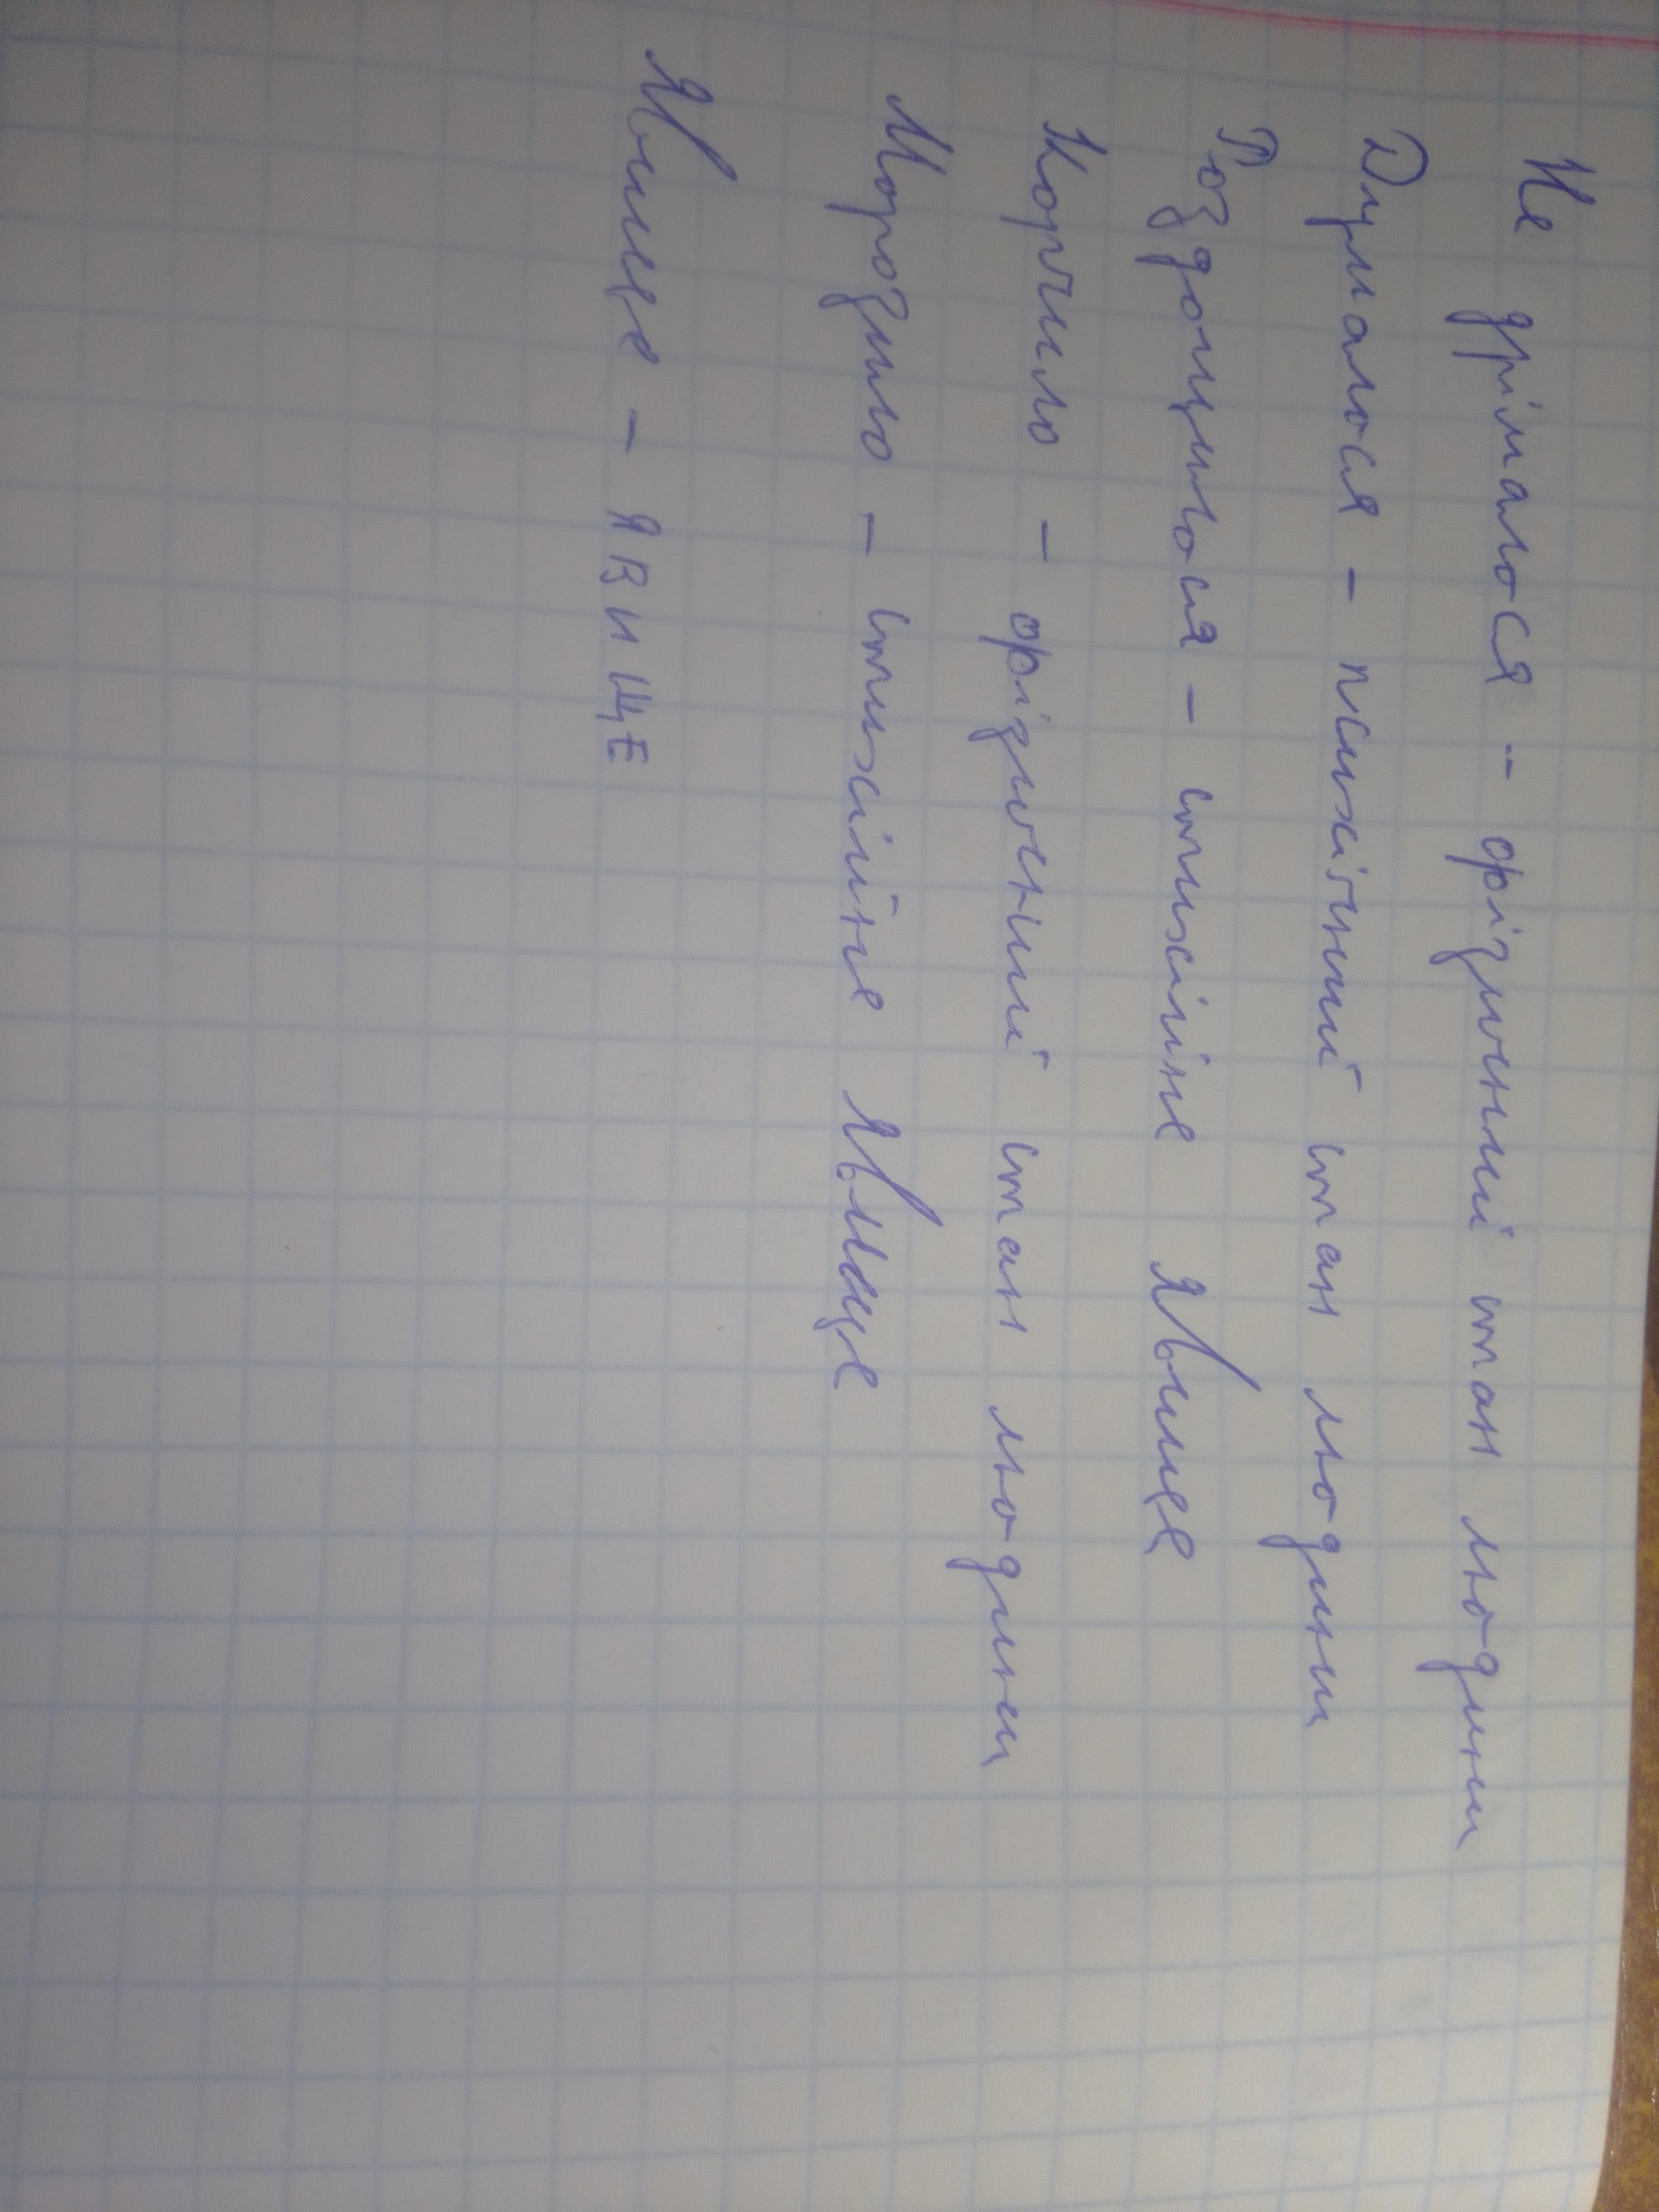 Не дрімалося – фізичний стан людини
Думалося – психічний стан людини
Роздощилося – стихійне явище
Корчило – фізичний стан людини
Морозило – стихійне явище
Явище – ЯВИЩЕ